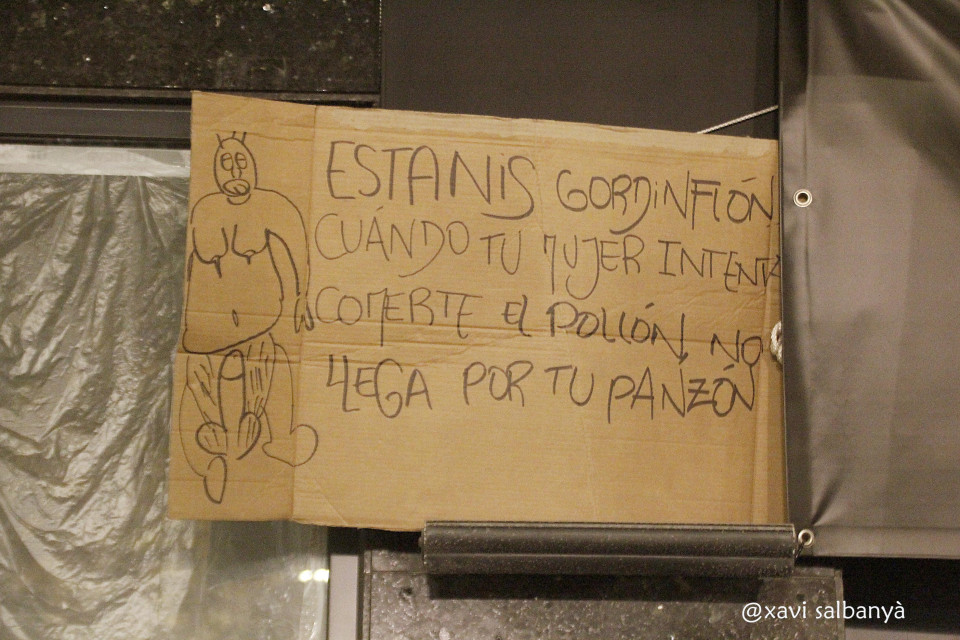 ESTANIS GORDINFLÓN
CUÁNDO TU MUJER INTENTA
COMERTE El POLLÓN, NO
LLEGA POR TU PANZÓN
@xavi salbanyà